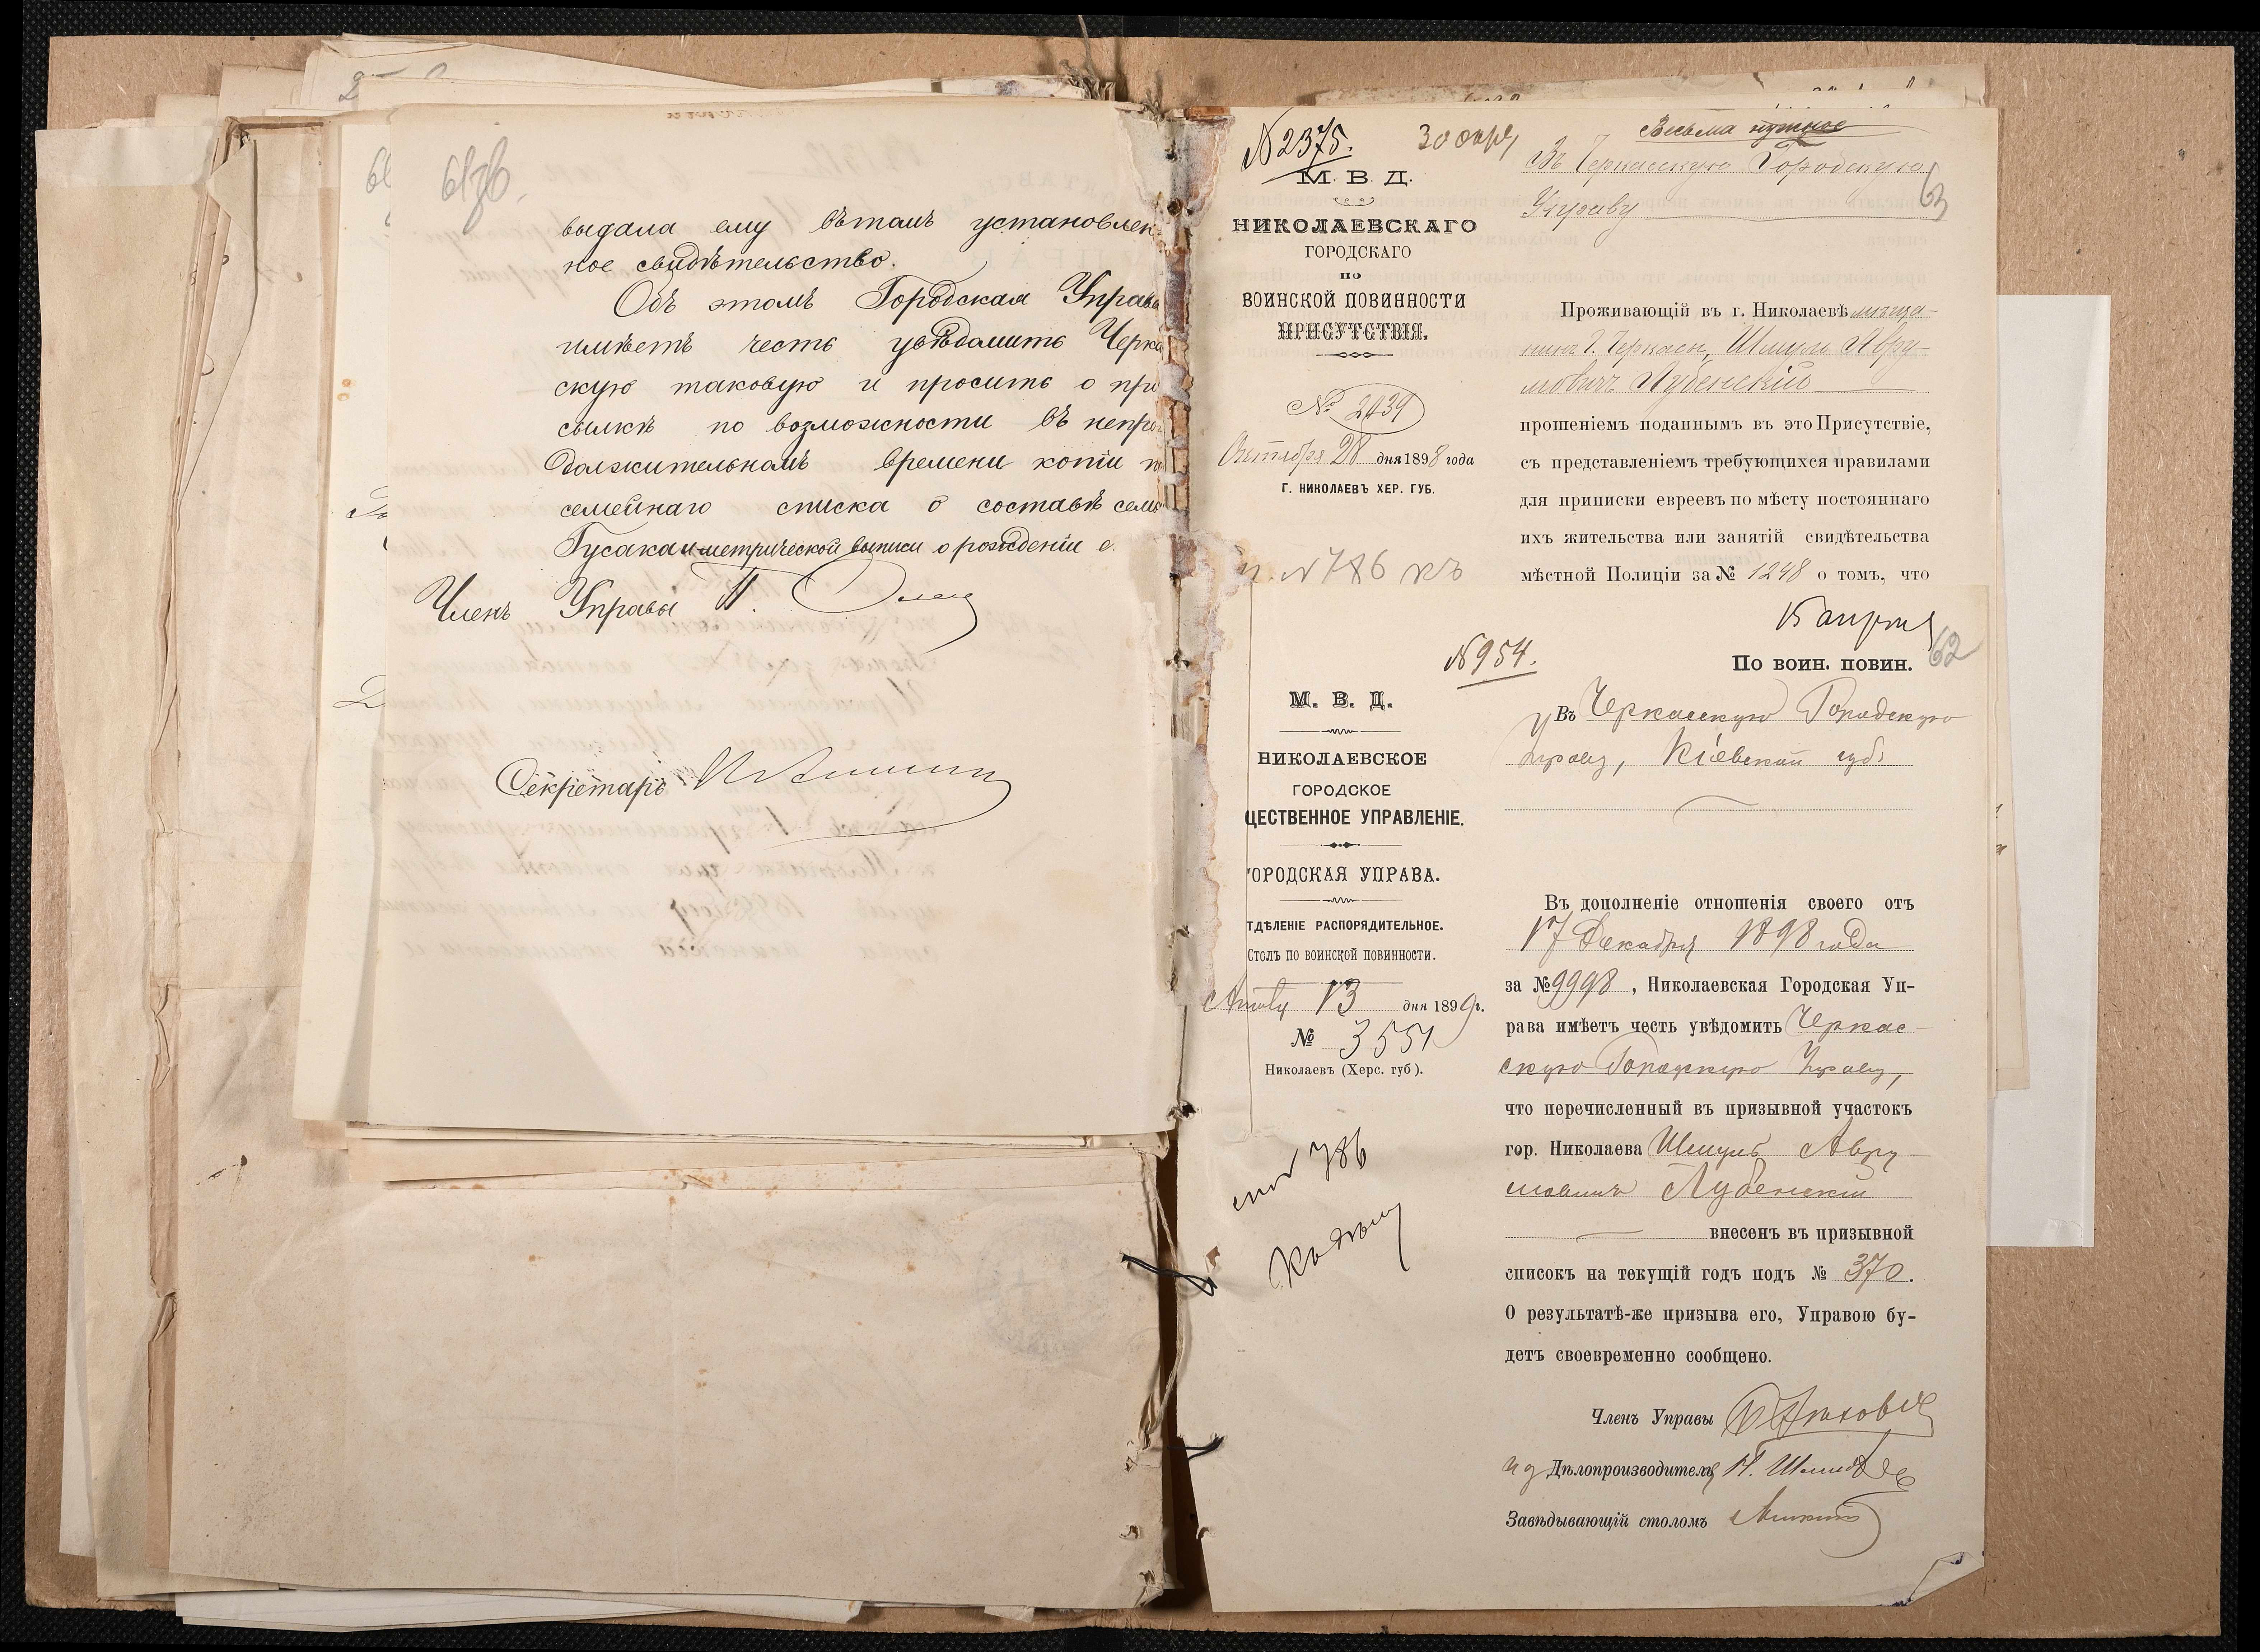 61об.
выдала ему вѣтомъ установлен
ное свидѣтельство.
Объ этомъ Городская Управа
имѣетъ честь увѣдомить Черка
скую таковую и просить о при
сылкѣ по возможности въ непро
должительномъ времени копіи
семейнаго списка о составѣ семьи
Гусака и метрической выписи о рожденіи е
Членъ Управы
Секретарь
№ 2375.
М. В. Д.
НИКОЛАЕВСКАГО
ГОРОДСКАГО
ПО
ВОИНСКОЙ ПОВИННОСТИ
ПРИСУТСТВІЯ.
№ 2439
Октября 28 дня 1898 года
Г. НИКОЛАЕВЪ ХЕР. ГУБ.
№ 786
Весьма нужное
Въ Черкасскую Городскую
Управу
63
Проживающій въ г. Николаевѣ мѣща-
нинъ г. Черкасъ, Шмуль Абру-
мовичъ Лубенскій
прошеніемъ поданнымъ въ это Присутствіе,
съ представленіемъ требующихся правилами
для приписки евреевъ по мѣсту постояннаго
ихъ жительства или занятій свидѣтельства
мѣстной Полиціи за № 1248 о томъ, что
№ 954.
М. В. Д.
НИКОЛАЕВСКОЕ
ГОРОДСКОЕ
ЩЕСТВЕННОЕ УПРАВЛЕНІЕ.
ОРОДСКАЯ УПРАВА.
ТДѢЛЕНІЕ РАСПОРЯДИТЕЛЬНОЕ.
Столъ по воинской повинности.
13 дня 1899 г.
№ 3551
Николаевъ (Херс. губ).
786
62
По воин. повин.
Въ Черкасскую Городскую
Управу, Кіевской губ.
Въ дополненіе отношенія своего отъ
17 Декабря 1898 года
за № 9998, Николаевская Городская Уп-
рава имѣетъ честь увѣдомить Черкас-
скую Городскую Управу,
что перечисленный въ призывной участокъ
гор. Николаева Шмуль Абру-
мовичъ Лубенскій
внесенъ въ призывной
списокъ на текущій годъ подъ № 370.
О результатѣ-же призыва его, Управою бу-
детъ своевременно сообщено.
Членъ Управы
И д Дѣлопроизводителя
Завѣдывающій столомъ